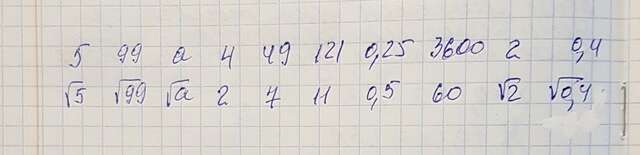 5 99 a 4 49 121 0,25 3600 2 0,4
√5 √99 √a 2 7 11 0,5 60 √2 √0,4